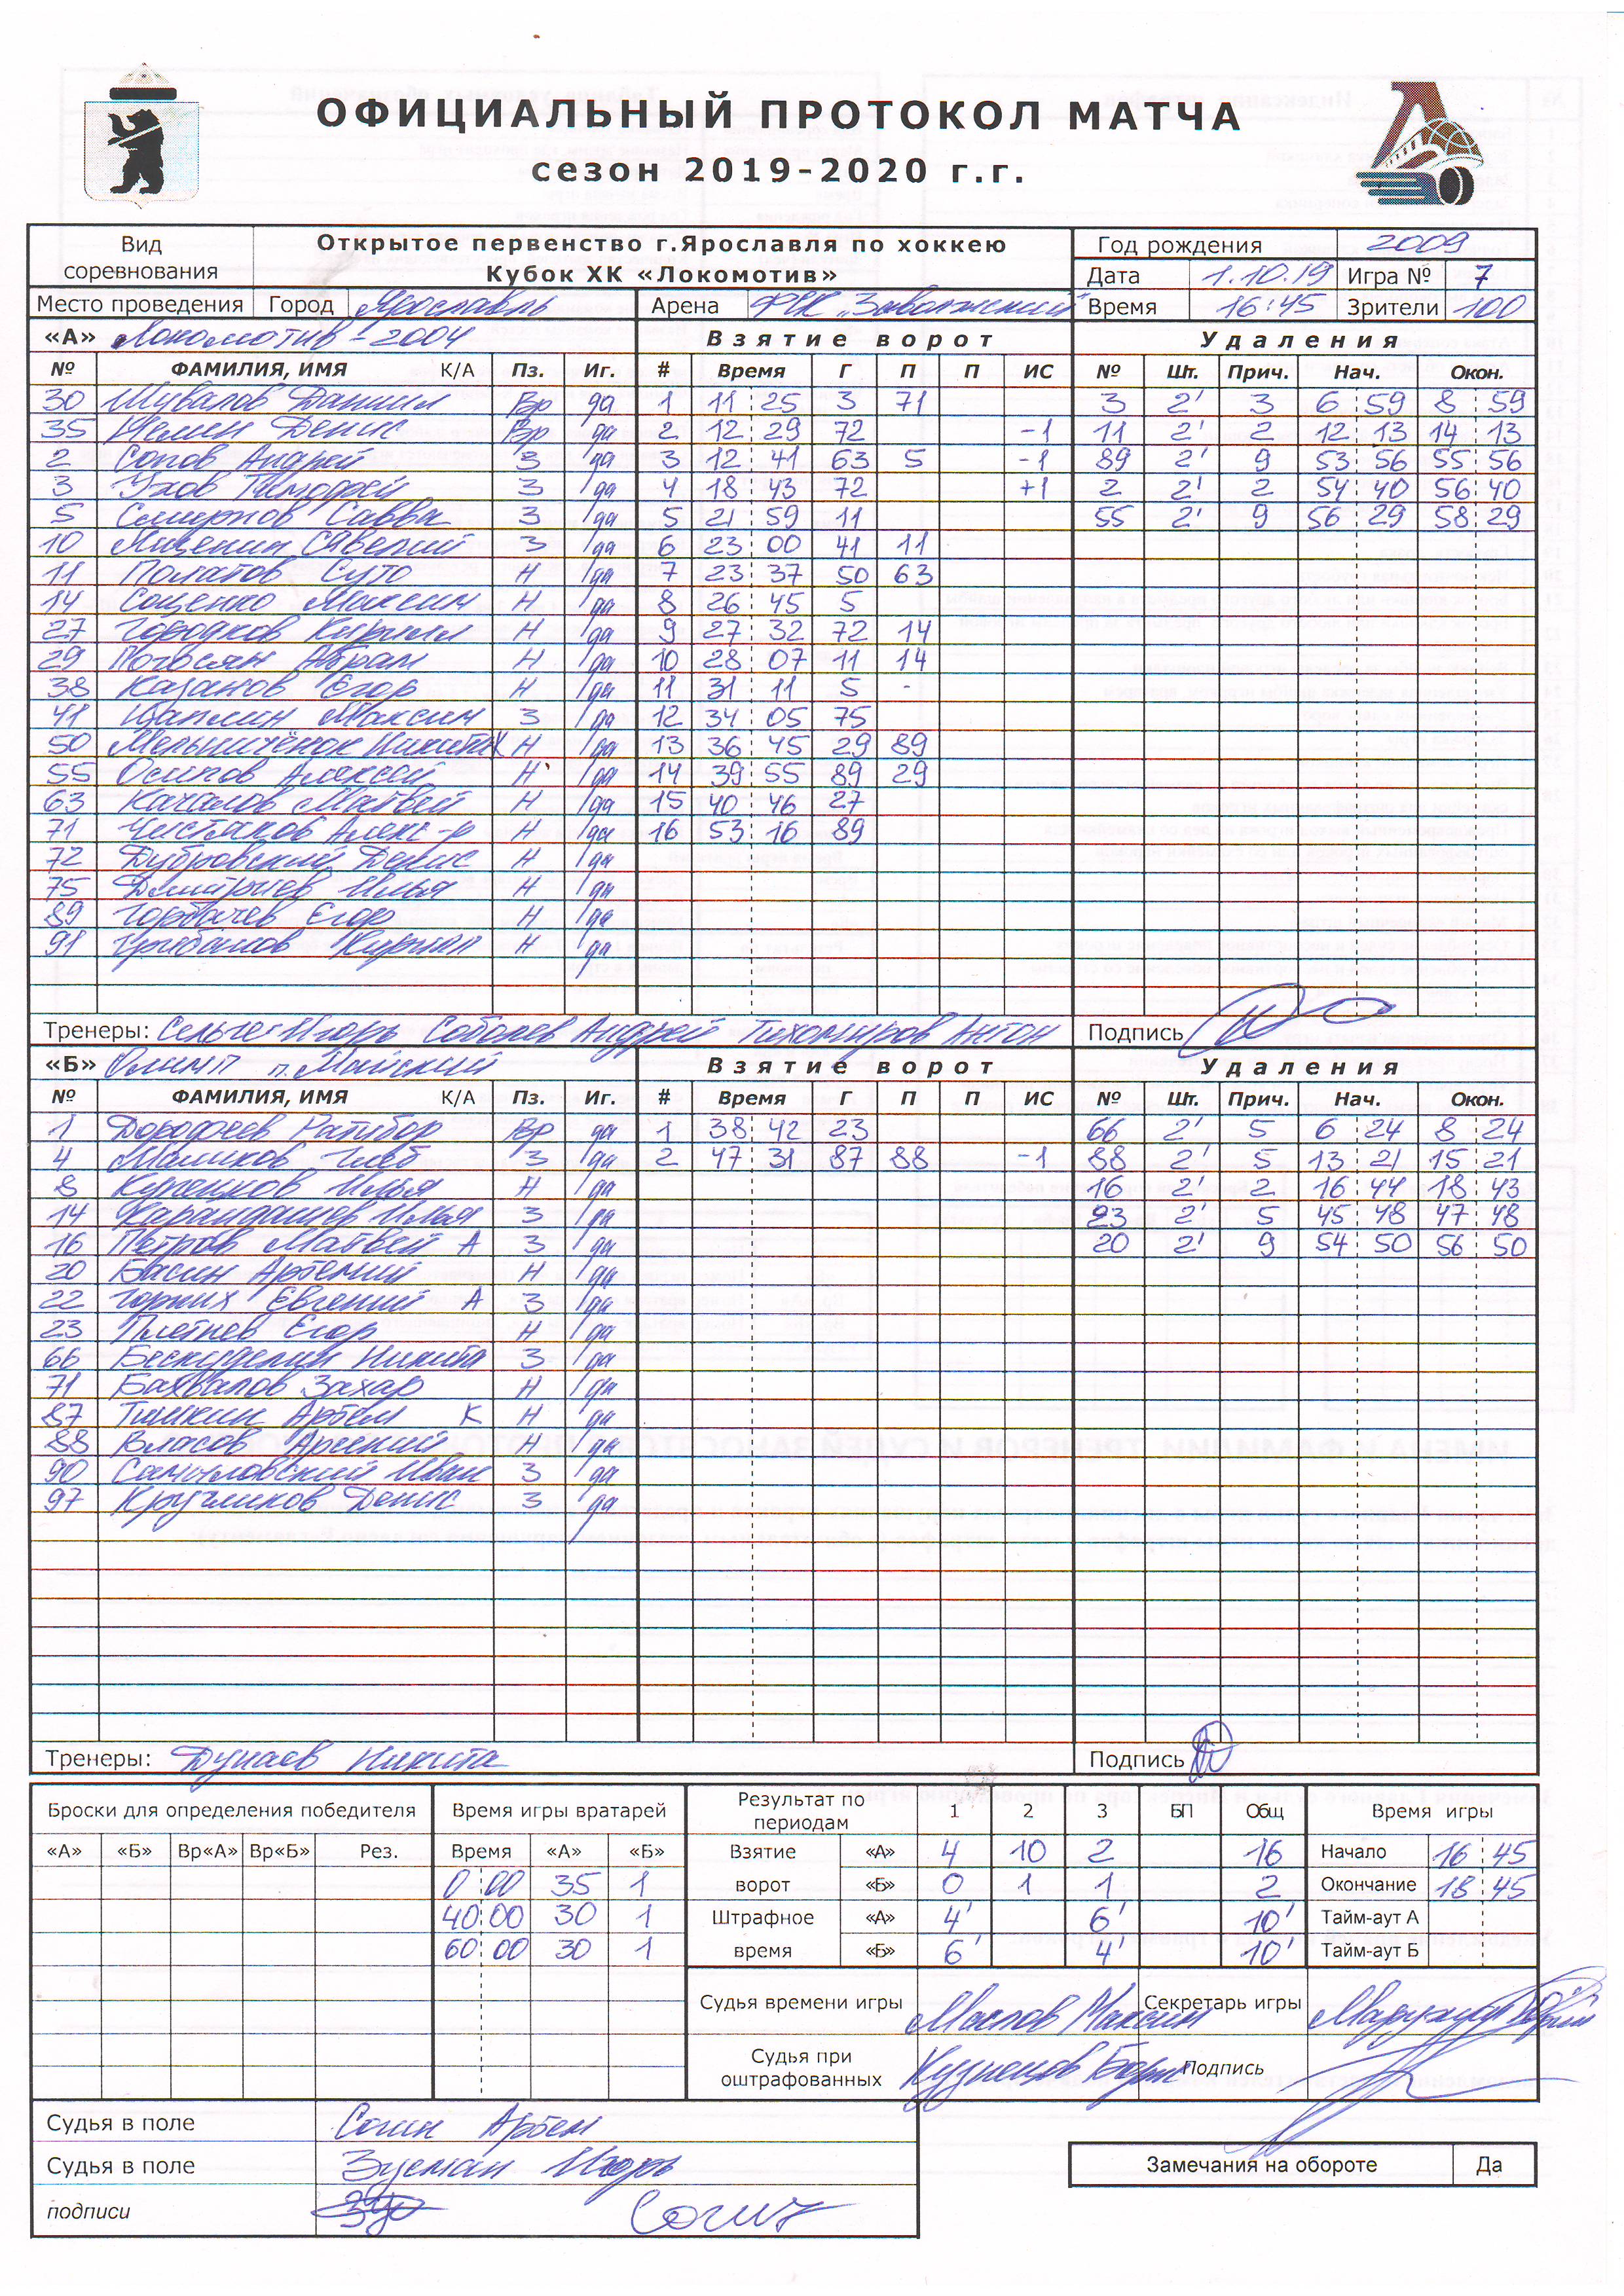 ОФИЦИАЛЬНЫЙ ПРОТОКОЛ МАТЧА
сезон 2019-2020 г.г.
Вид соревнования Открытое первенство г.Ярославля по хоккею Кубок ХК «Локомотив» Год рождения 2009
Дата 1.10.19 Игра № 7
Место проведения Город Ярославль Арена ФСК „Заволжский" Время 16:45 Зрители 100
«А» Локомотив-2004 Взятие ворот Удаления
№ ФАМИЛИЯ, ИМЯ К/А Пз. Иг. # Время Г П П ИС № Шт. Прич. Нач. Окон.
30 Шувалов Даниил Вр да 1 11 25 3 71 3 2' 3 6 59 8 59
35 Денис Вр да 2 12 29 72 -1 11 2' 2 12 13 14 13
2 Сопов Андрей З да 3 12 41 63 5 -1 89 2' 9 53 56 55 56
3 Ухов Тимофей З да 4 18 43 72 +1 2 2' 2 54 40 56 40
5 Смирнов Савва З да 5 21 59 11 55 2' 9 56 29 58 29
10 Савелий З да 6 23 00 41 11
11 Полатов Суто Н да 7 23 37 50 63
14 Соценко Максим Н да 8 26 45 5
27 Городков Кирилл Н да 9 27 32 72 14
29 Погосян Абрам Н да 10 28 07 11 14
38 Казанов Егор Н да 11 31 11 5 -
41 Цаплин Максим З да 12 34 05 75
50 Мельничёнок Никита К Н да 13 36 45 29 89
55 Осипов Алексей Н да 14 39 55 89 29
63 Качалов Матвей Н да 15 40 46 27
71 Чистяков Алекс-р Н да 16 53 16 89
72 Дубровский Денис Н да
75 Дмитриев Илья Н да
89 Горбачев Егор Н да
91 Кирилл Н да
Тренеры: Игорь Соболев Андрей Тихомиров Антон Подпись
«Б» Олимп п. Майский Взятие ворот Удаления
№ ФАМИЛИЯ, ИМЯ К/А Пз. Иг. # Время Г П П ИС № Шт. Прич. Нач. Окон.
1 Дородочев Ратибор Вр да 1 38 42 23 66 2' 5 6 24 8 24
4 Маликов Глеб З да 2 47 31 87 88 -1 88 2' 5 13 21 15 21
8 Илья Н да 16 2' 2 16 44 18 43
14 Карандашев Илья З да 23 2' 5 45 48 47 48
16 Петров Матвей А З да 20 2' 9 54 50 56 50
20 Басин Артемий Н да
22 Горних Евгений А З да
23 Плетнев Егор Н да
66 Никита З да
71 Бахвалов Захар Н да
87 Тимкин Артем К Н да
88 Власов Арсений Н да
90 Самыловский Иван З да
97 Кругликов Денис З да
Тренеры: Дунаев Никита Подпись
Броски для определения победителя Время игры вратарей Результат по периодам 1 2 3 БП Общ Время игры
«А» «Б» Вр«А» Вр«Б» Рез. Время «А» «Б» Взятие «А» 4 10 2 16 Начало 16 45
0 00 35 1 ворот «Б» 0 1 1 2 Окончание 18 45
40 00 30 1 Штрафное «А» 4' 6' 10' Тайм-аут А
60 00 30 1 время «Б» 6' 4' 10' Тайм-аут Б
Судья времени игры Маслов Максим Секретарь игры
Судья при оштрафованных Кузнецов Борис Подпись
Судья в поле Согин Артем
Судья в поле Зусман Игорь
Замечания на обороте Да
подписи